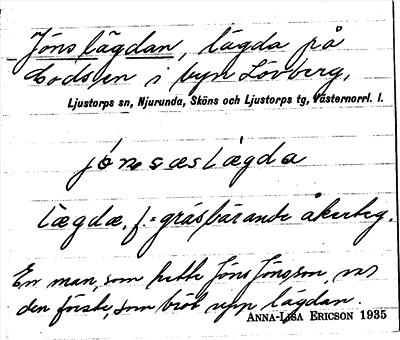 Jönslägdan, lägda på
i byn Lövberg,
Ljustorps sn, Njurunda, Sköns och Ljustorps tg, Västernorrl. l.
jónsæslægda
lægdæ, f. = gräsbärande åkerteg.
En man, som hette Jöns Jönsson, var
den förste, som bröt upp lägdan.
ANNA-LISA ERICSON 1935